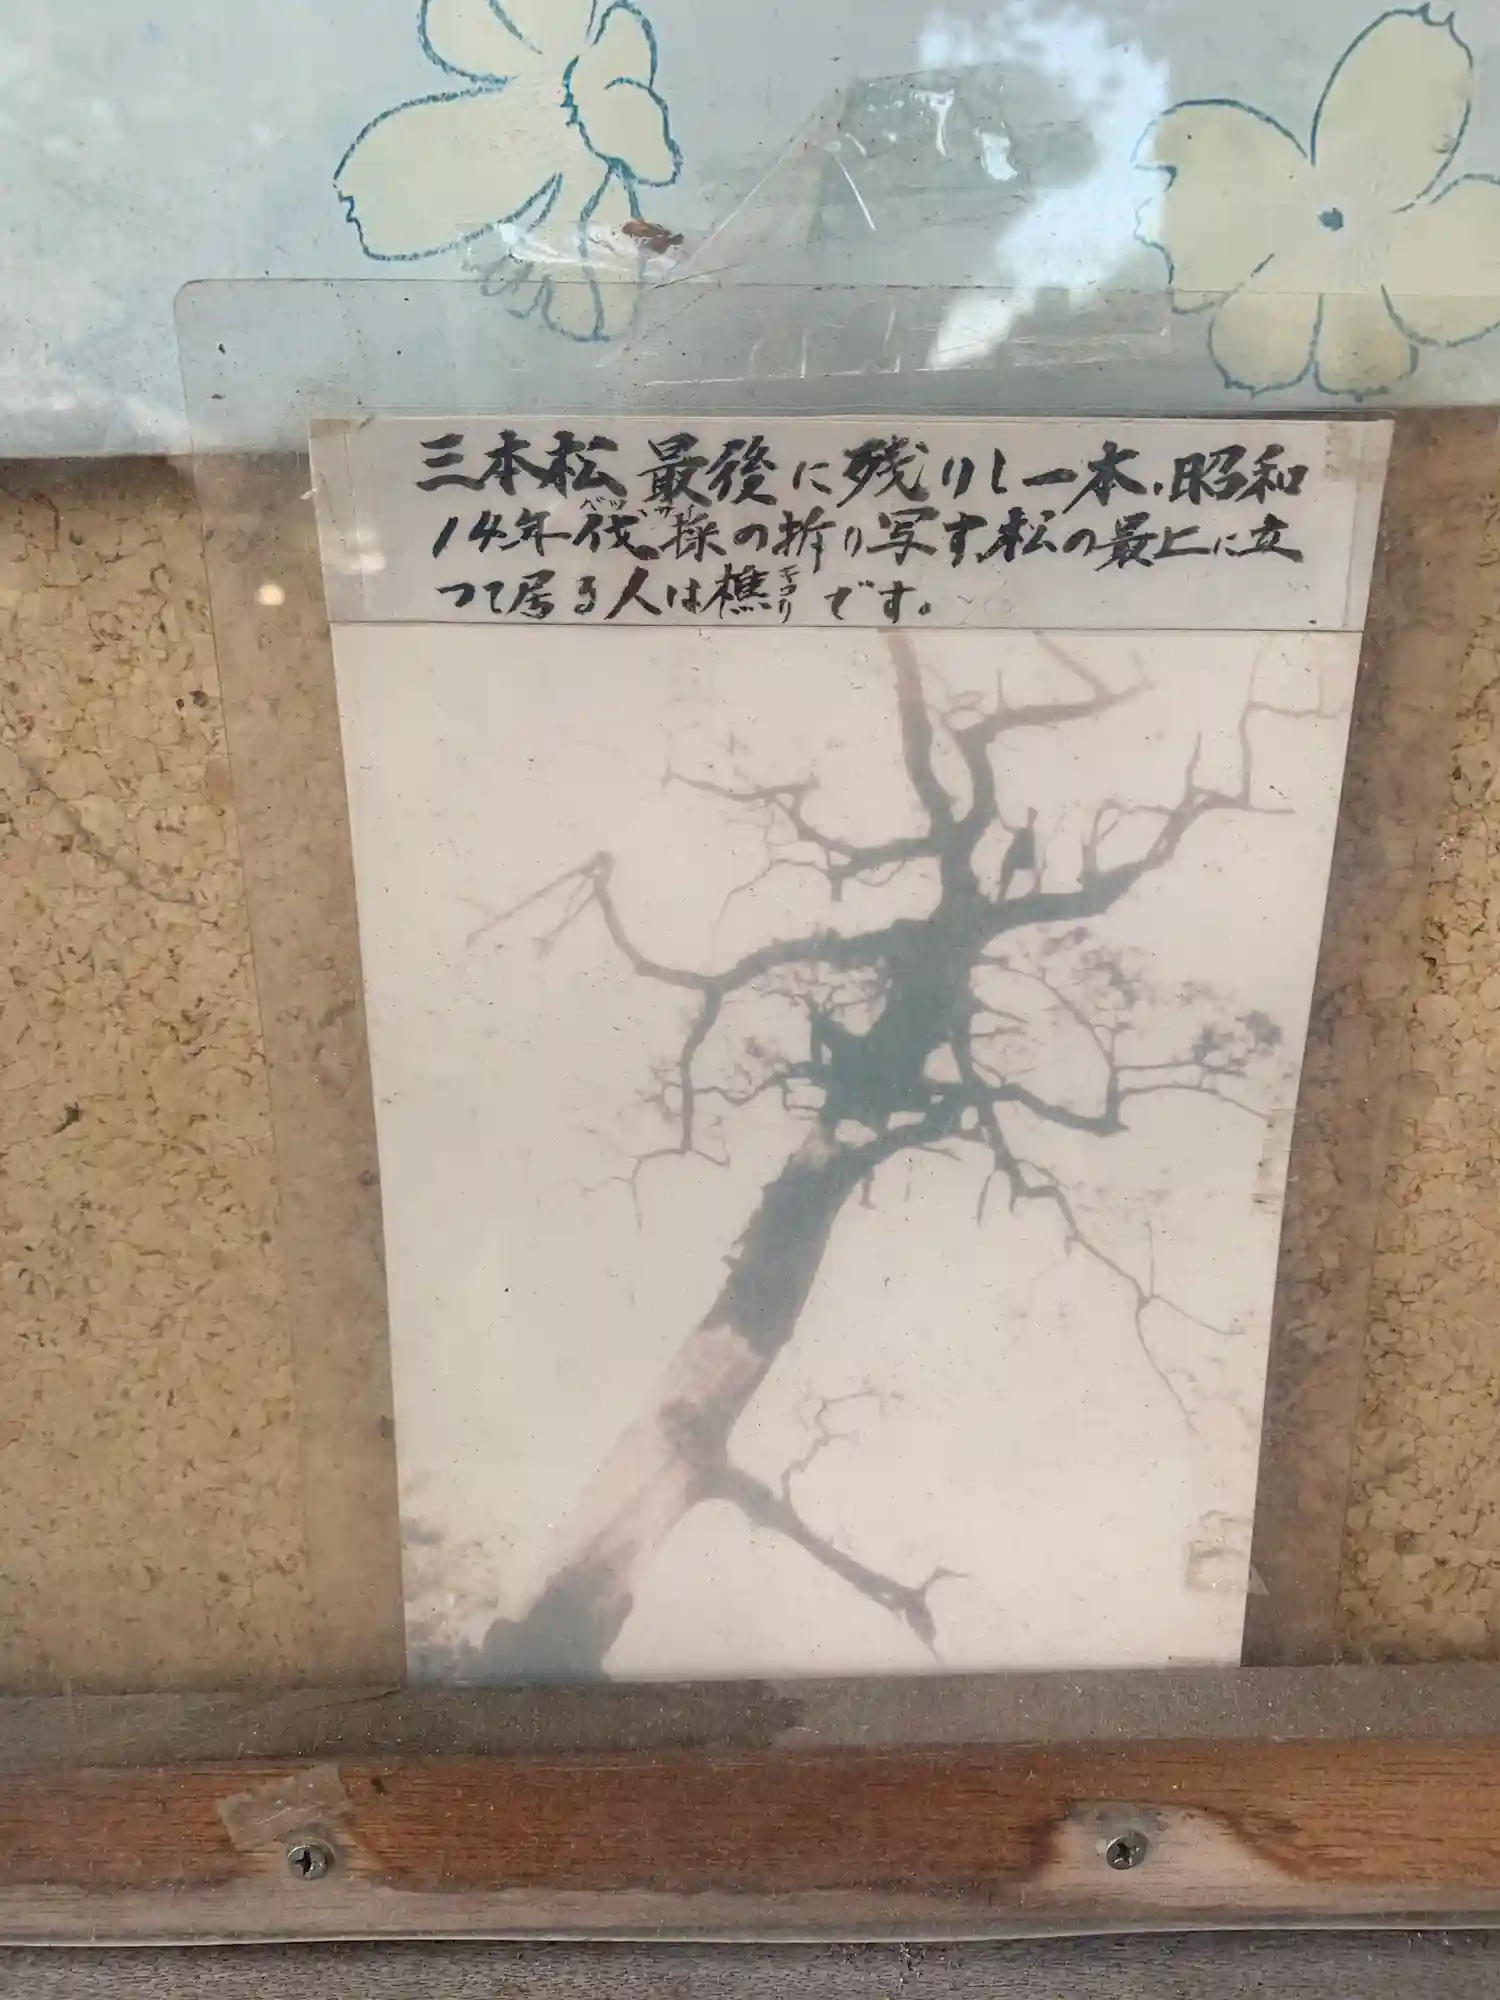 三本松最後に残りし一本、昭和
14年伐採の折り写す、松の最上に立
バッサイ
つて居る人は樵です。
キコリ